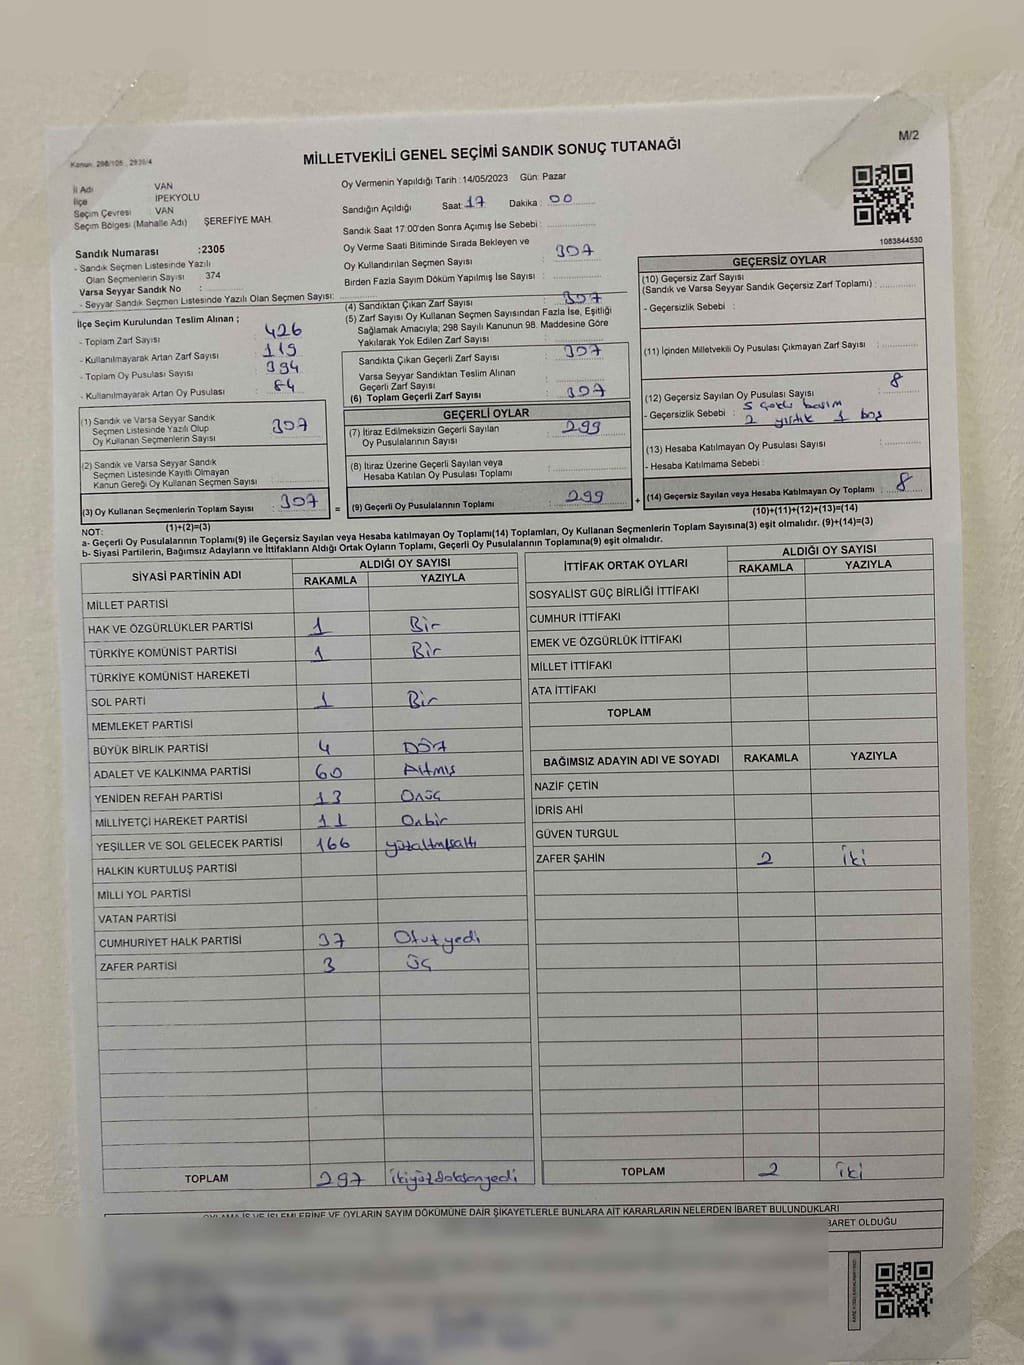 Kanun: 298/105 , 2839/4
M/2
MİLLETVEKİLİ GENEL SEÇİMİ SANDIK SONUÇ TUTANAĞI
İl Adı VAN
İlçe İPEKYOLU
Seçim Çevresi : VAN
Seçim Bölgesi (Mahalle Adı) ŞEREFİYE MAH.
Sandık Numarası :2305
- Sandık Seçmen Listesinde Yazılı
Olan Seçmenlerin Sayısı : 374
Varsa Seyyar Sandık No :
- Seyyar Sandık Seçmen Listesinde Yazılı Olan Seçmen Sayısı:
Oy Vermenin Yapıldığı Tarih :14/05/2023 Gün: Pazar
Sandığın Açıldığı Saat: 17 Dakika : 00
Sandık Saat 17:00'den Sonra Açımış İse Sebebi :
Oy Verme Saati Bitiminde Sırada Bekleyen ve
Oy Kullandırılan Seçmen Sayısı : 307
Birden Fazla Sayım Döküm Yapılmış İse Sayısı :
1083844530
İlçe Seçim Kurulundan Teslim Alınan ;
- Toplam Zarf Sayısı : 426
- Kullanılmayarak Artan Zarf Sayısı : 119
- Toplam Oy Pusulası Sayısı : 394
- Kullanılmayarak Artan Oy Pusulası : 84
(1) Sandık ve Varsa Seyyar Sandık
Seçmen Listesinde Yazılı Olup
Oy Kullanan Seçmenlerin Sayısı : 307
(2) Sandık ve Varsa Seyyar Sandık
Seçmen Listesinde Kayıtlı Olmayan
Kanun Gereği Oy Kullanan Seçmen Sayısı :
(3) Oy Kullanan Seçmenlerin Toplam Sayısı : 307
(1)+(2)=(3)
(4) Sandıktan Çıkan Zarf Sayısı : 307
(5) Zarf Sayısı Oy Kullanan Seçmen Sayısından Fazla İse, Eşitliği
Sağlamak Amacıyla; 298 Sayılı Kanunun 98. Maddesine Göre
Yakılarak Yok Edilen Zarf Sayısı :
Sandıkta Çıkan Geçerli Zarf Sayısı : 307
Varsa Seyyar Sandıktan Teslim Alınan
Geçerli Zarf Sayısı :
(6) Toplam Geçerli Zarf Sayısı : 307
GEÇERLİ OYLAR
(7) İtiraz Edilmeksizin Geçerli Sayılan
Oy Pusulalarının Sayısı : 299
(8) İtiraz Üzerine Geçerli Sayılan veya
Hesaba Katılan Oy Pusulası Toplamı :
= (9) Geçerli Oy Pusulalarının Toplamı : 299
GEÇERSİZ OYLAR
(10) Geçersiz Zarf Sayısı
(Sandık ve Varsa Seyyar Sandık Geçersiz Zarf Toplamı) :
- Geçersizlik Sebebi :
(11) İçinden Milletvekili Oy Pusulası Çıkmayan Zarf Sayısı :
(12) Geçersiz Sayılan Oy Pusulası Sayısı : 8
- Geçersizlik Sebebi : 5 çoklu basım
2 yırtık 1 boş
(13) Hesaba Katılmayan Oy Pusulası Sayısı :
- Hesaba Katılmama Sebebi :
+ (14) Geçersiz Sayılan veya Hesaba Katılmayan Oy Toplamı : 8
(10)+(11)+(12)+(13)=(14)
NOT:
a- Geçerli Oy Pusulalarının Toplamı(9) ile Geçersiz Sayılan veya Hesaba katılmayan Oy Toplamı(14) Toplamları, Oy Kullanan Seçmenlerin Toplam Sayısına(3) eşit olmalıdır. (9)+(14)=(3)
b- Siyasi Partilerin, Bağımsız Adayların ve İttifakların Aldığı Ortak Oyların Toplamı, Geçerli Oy Pusulalarının Toplamına(9) eşit olmalıdır.
SİYASİ PARTİNİN ADI ALDIĞI OY SAYISI
RAKAMLA YAZIYLA
MİLLET PARTİSİ
HAK VE ÖZGÜRLÜKLER PARTİSİ 1 Bir
TÜRKİYE KOMÜNİST PARTİSİ 1 Bir
TÜRKİYE KOMÜNİST HAREKETİ
SOL PARTİ 1 Bir
MEMLEKET PARTİSİ
BÜYÜK BİRLİK PARTİSİ 4 Dört
ADALET VE KALKINMA PARTİSİ 60 Altmış
YENİDEN REFAH PARTİSİ 13 Onüç
MİLLİYETÇİ HAREKET PARTİSİ 11 Onbir
YEŞİLLER VE SOL GELECEK PARTİSİ 166 yüzaltmışaltı
HALKIN KURTULUŞ PARTİSİ
MİLLİ YOL PARTİSİ
VATAN PARTİSİ
CUMHURİYET HALK PARTİSİ 37 Otuz yedi
ZAFER PARTİSİ 3 Üç
TOPLAM 297 ikiyüzdoksanyedi
İTTİFAK ORTAK OYLARI ALDIĞI OY SAYISI
RAKAMLA YAZIYLA
SOSYALİST GÜÇ BİRLİĞİ İTTİFAKI
CUMHUR İTTİFAKI
EMEK VE ÖZGÜRLÜK İTTİFAKI
MİLLET İTTİFAKI
ATA İTTİFAKI
TOPLAM
BAĞIMSIZ ADAYIN ADI VE SOYADI RAKAMLA YAZIYLA
NAZİF ÇETİN
İDRİS AHİ
GÜVEN TURGUL
ZAFER ŞAHİN 2 iki
TOPLAM 2 iki
OYLAMA İŞ VE İŞLEMLERİNE VE OYLARIN SAYIM DÖKÜMÜNE DAİR ŞİKAYETLERLE BUNLARA AİT KARARLARIN NELERDEN İBARET BULUNDUKLARI
BARET OLDUĞU